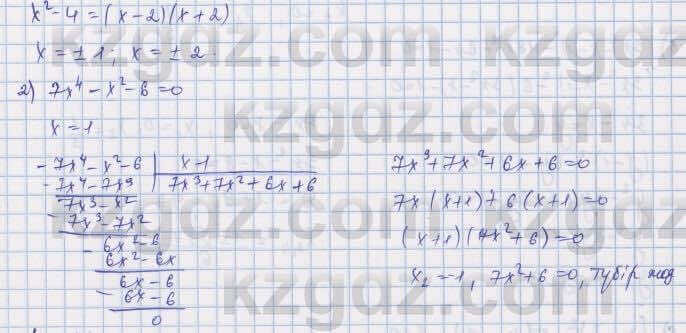 x² - 4 = (x - 2)(x + 2)
x = ± 1; x = ± 2.
2) 7x⁴ - x² - 6 = 0
x = 1
- 7x⁴ - x² - 6 | x - 1
7x⁴ - 7x³ | 7x³ + 7x² + 6x + 6
- 7x³ - x²
7x³ - 7x²
- 6x² - 6
6x² - 6x
- 6x - 6
6x - 6
0
7x³ + 7x² + 6x + 6 = 0
7x (x + 1) + 6 (x + 1) = 0
(x + 1)(7x² + 6) = 0
x₂ = -1, 7x² + 6 = 0, түбір жоқ
kzgdz.com
kzgdz.com
kzgdz.com
kzgdz.com